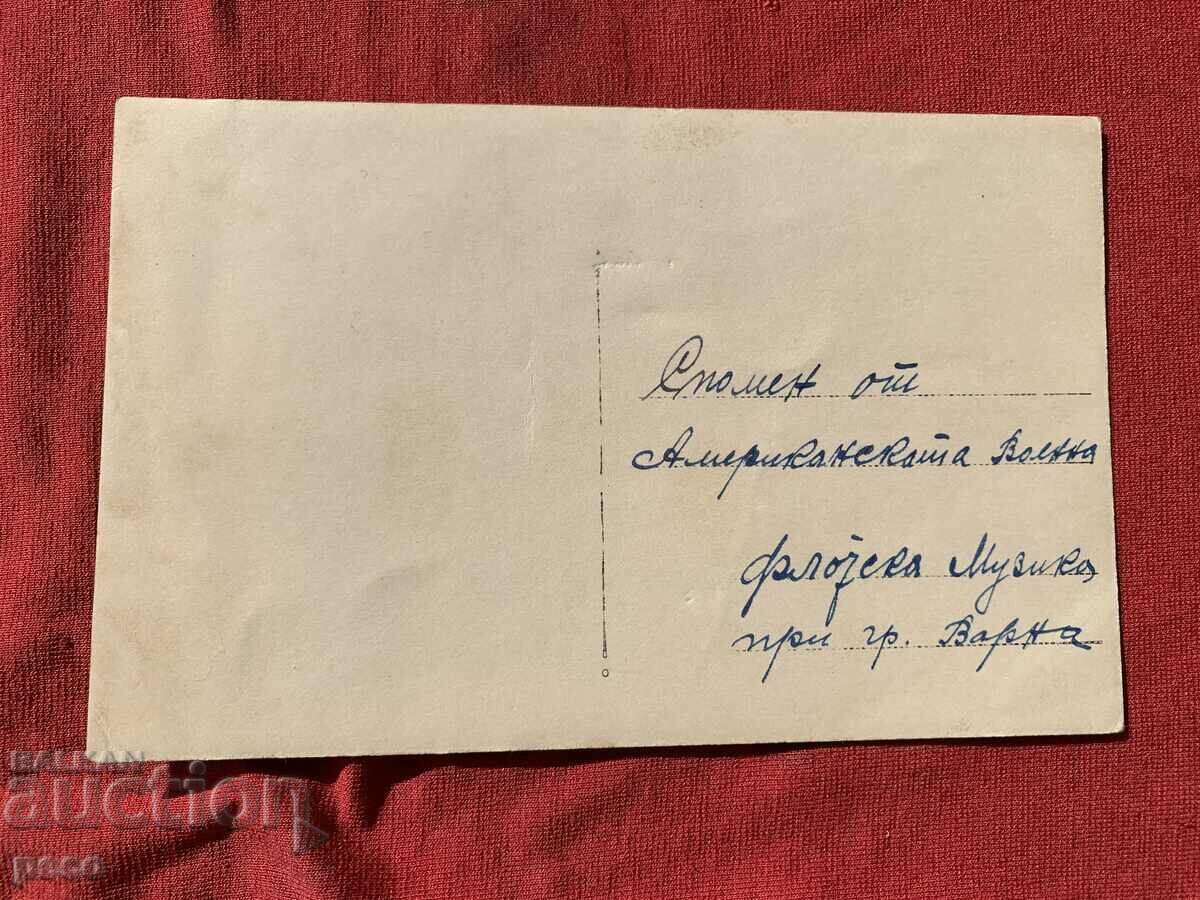 Спомен от
Американската Военна
флотска Музика
при гр. Варна
BALKAN
auction
peco